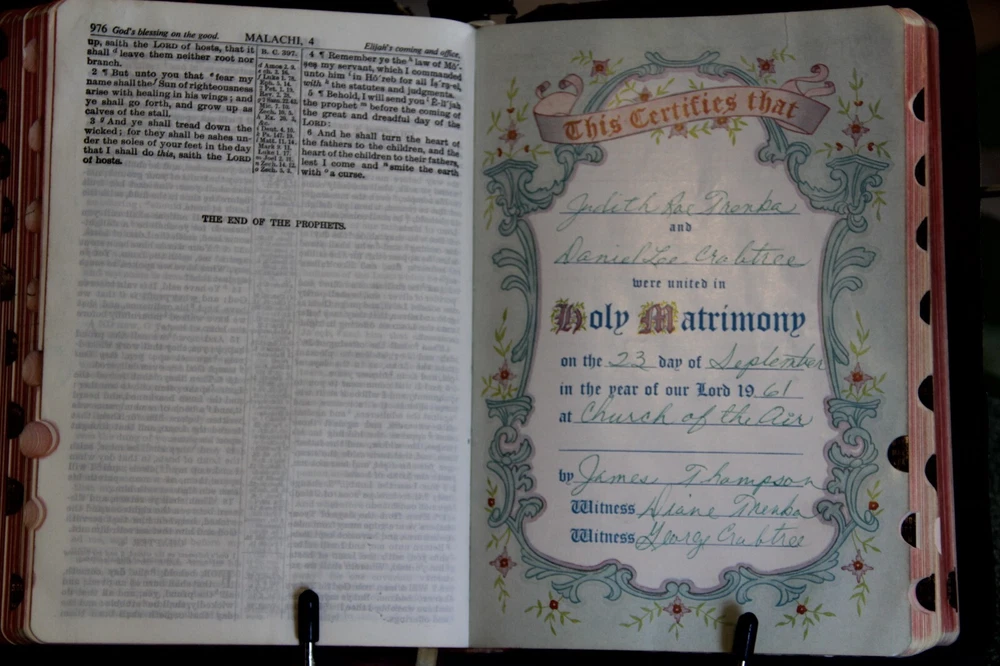 976 God's blessing on the good.
MALACHI, 4
Elijah's coming and office.
up, saith the LORD of hosts, that it
shall d leave them neither root nor
branch.
2 ¶ But unto you that e fear my
name shall the f Sun of righteousness
arise with healing in his wings; and
ye shall go forth, and grow up as
calves of the stall.
3 g And ye shall tread down the
wicked; for they shall be ashes un-
der the soles of your feet in the day
that I shall do this, saith the LORD
of hosts.
B. C. 397.
d Amos 2. 9.
4 ¶ Remember ye the h law of Mō'-
ses my servant, which I commanded
unto him i in Hō'reb for all Is'ra-el,
with k the statutes and judgments.
5 ¶ Behold, I will send you l Ē-lī'jah
the prophet m before the coming of
the great and dreadful day of the
LORD:
6 And he shall turn the heart of
the fathers to the children, and the
heart of the children to their fathers,
lest I come and n smite the earth
with o a curse.
THE END OF THE PROPHETS.
This Certifies that
Judith Rae Trenba
and
Daniel Lee Crabtree
were united in
Holy Matrimony
on the 23 day of September
in the year of our Lord 1961
at Church of the Air
by James Thompson
Witness Diane Trenba
Witness Georg Crabtree